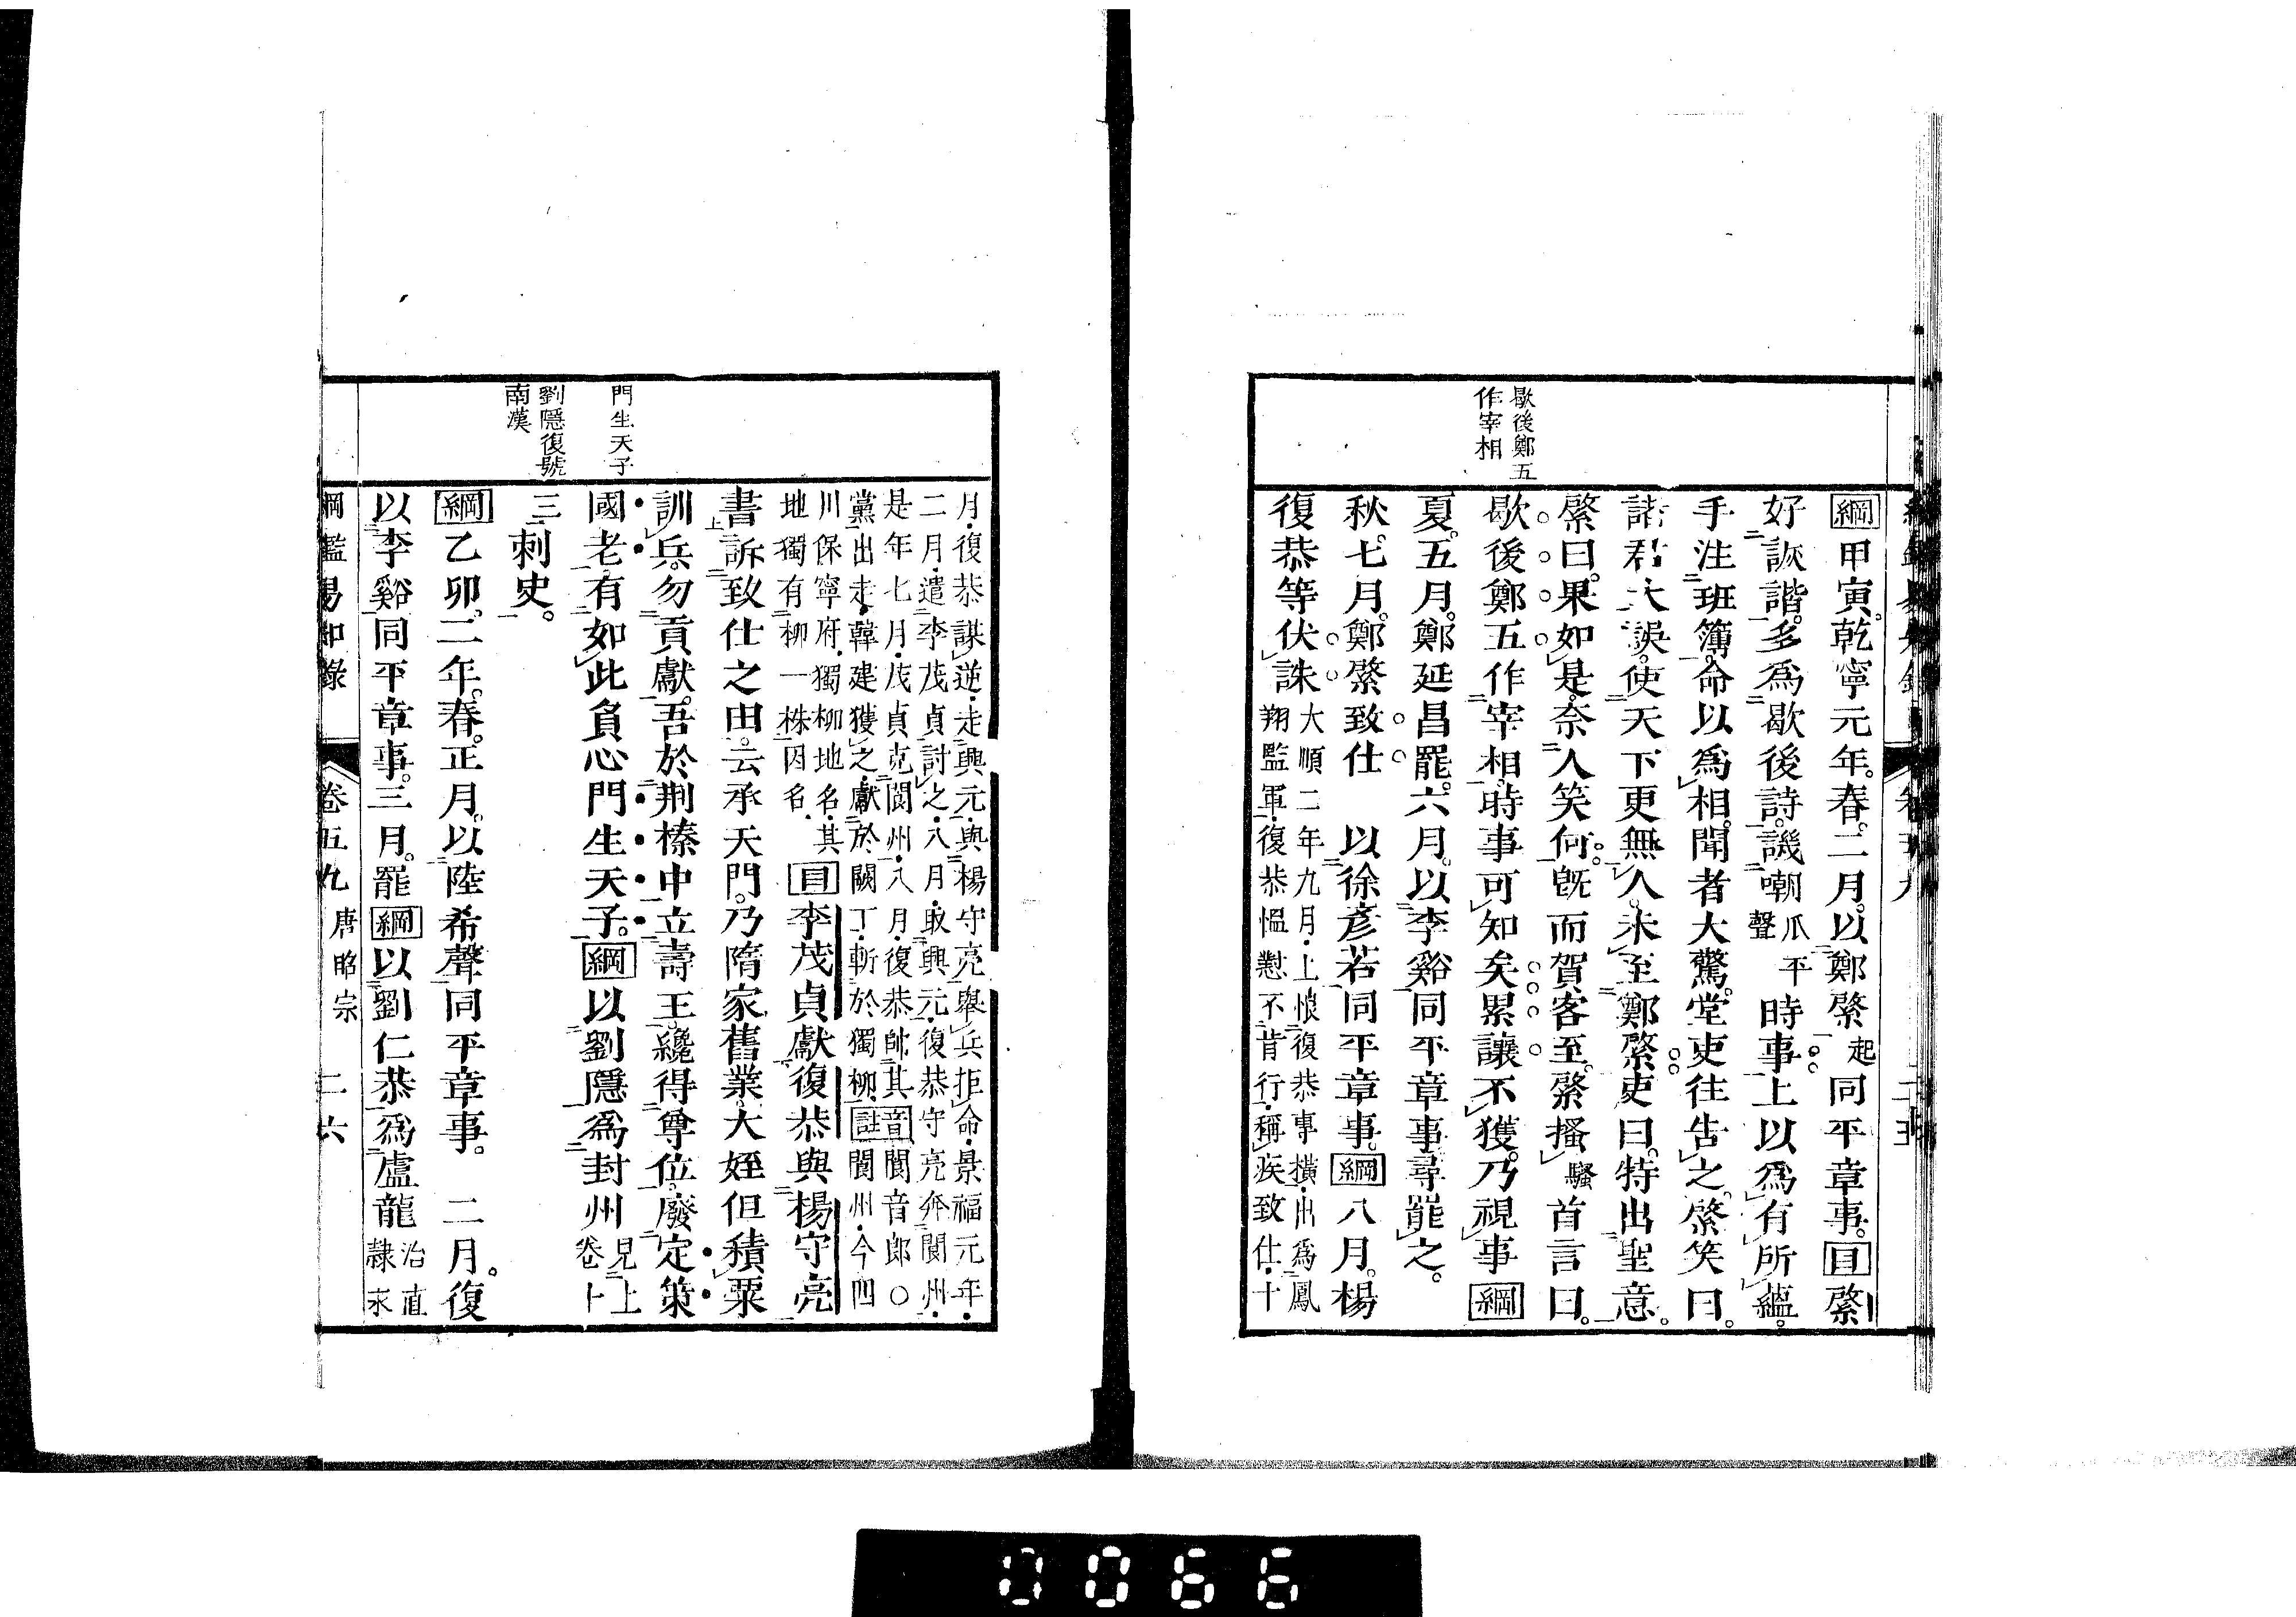 歇後鄭五
作宰相
綱甲寅。乾寧元年。春。二月。以鄭綮起同平章事。目綮
好詼諧。多爲歇後詩。譏嘲爪平聲時事。上以爲有所蘊。
手注班簿。命以爲相。聞者大驚。堂吏往告之。綮笑曰。
諸君大誤。使天下更無人。未至鄭綮。吏曰。特出聖意。
綮曰。果如是。奈人笑何。既而賀客至。綮搔騷首言曰。
歇後鄭五作宰相。時事可知矣。累讓不獲。乃視事綱
夏。五月。鄭延昌罷。六月。以李谿同平章事。尋罷之。
秋。七月。鄭綮致仕 以徐彥若同平章事。綱八月。楊
復恭等伏誅大順二年九月上恨復恭專橫出爲鳳
翔監軍復恭慍懟不肯行稱疾致仕十
門生天子
劉隱復號
南漢
月復恭謀逆走興元與楊守亮舉兵拒命景福元年
二月遣李茂貞討之八月取興元復恭守亮奔閬州
是年七月茂貞克閬州八月復恭帥其音閬音郎〇
黨出走韓建獲之獻於闕丁斬於獨柳註閬州今四
川保寧府獨柳地名其
地獨有柳一株因名目李茂貞獻復恭與楊守亮
書訴致仕之由。云承天門。乃隋家舊業。大姪但積粟
訓兵。勿貢獻。吾於荆榛中立壽王。纔得尊位。廢定策
國老。有如此負心門生天子。綱以劉隱爲封州見上
卷卜
三刺史。
綱乙卯。二年。春。正月。以陸希聲同平章事。 二月。復
以李谿同平章事。三月。罷綱以劉仁恭爲盧龍治直
隸永
綱鑑易知錄 卷五九 唐昭宗 二六